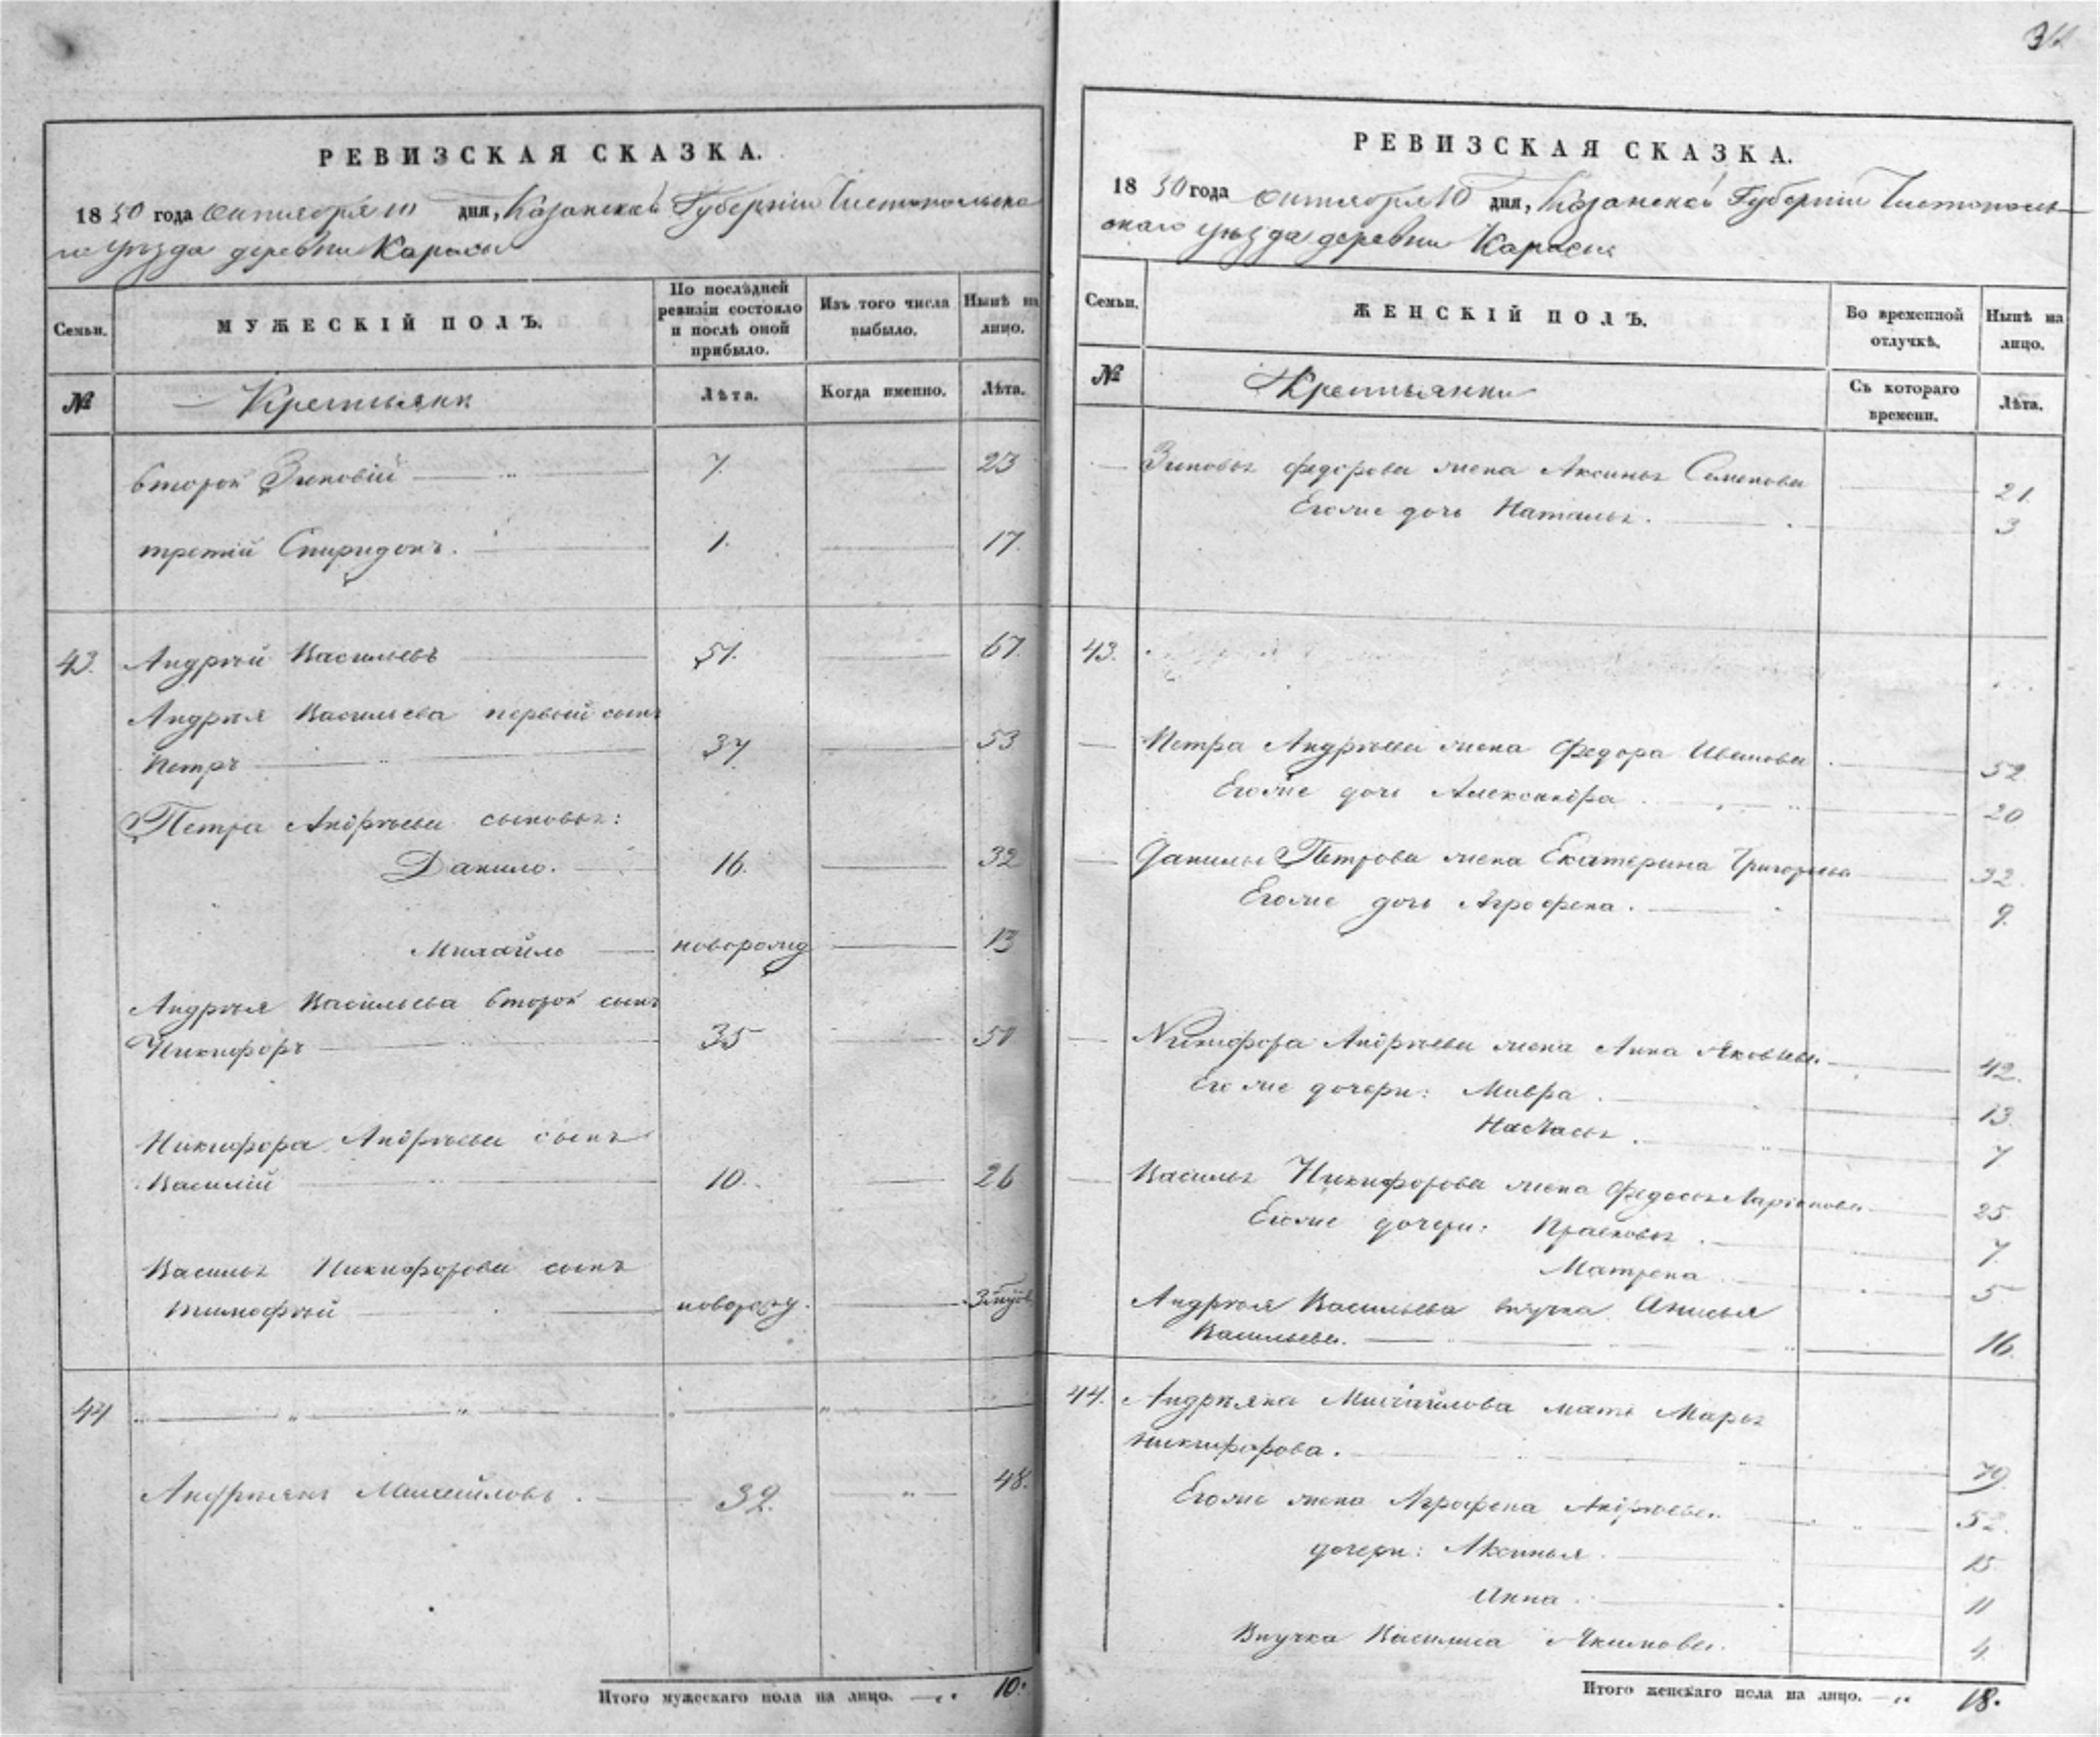 РЕВИЗСКАЯ СКАЗКА.
1850 года октября 10 дня, Казанской Губерніи Чистопольска
го уѣзда деревни Карасы
Семьи. МУЖЕСКІЙ ПОЛЪ. По послѣдней ревизіи состояло и послѣ оной прибыло. Изъ того числа выбыло. Нынѣ на лицо.
№ Крестьяни Лѣта. Когда именно. Лѣта.
второй Зиновій 7. 23
третій Спиридонъ. 1. 17.
43. Андрѣй Васильевъ 51. 67.
Андрѣя Васильева первый сынъ
Петръ 37 53
Петра Андрѣева сыновья:
Данило. 16. 32
Михайло новорожд 13
Андрѣя Васильева второй сынъ
Никифоръ 35 51
Никифора Андрѣева сынъ
Василій 10. 26
Василья Никифорова сынъ
Тимофѣй новорожд.
44
Андреянъ Михайловъ. 32. 48.
Итого мужескаго пола на лицо. 10.
РЕВИЗСКАЯ СКАЗКА.
1850 года октября 10 дня, Казанской Губерніи Чистополь-
скаго уѣзда деревни Карасы
Семьи. ЖЕНСКІЙ ПОЛЪ. Во временной отлучкѣ. Нынѣ на лицо.
№ Крестьянки Съ котораго времени. Лѣта.
Зиновья Федорова жена Аксинья Семенова 21.
Егоже дочь Наталья. 3
43.
Петра Андрѣева жена Федора Иванова 52
Егоже дочь Александра 20
Данилы Петрова жена Екатерина Григорьева 32.
Егоже дочь Агрофена. 9.
Никифора Андрѣева жена Анна Яковлева 42.
Егоже дочери: Мавра 13.
Настасья. 7
Василья Никифорова жена Федосья Ларіонова 25
Егоже дочери: Прасковья 7.
Матрена 5
Андрѣя Васильева внучка Анисья
Васильева. 16.
44. Андреяна Михайлова мать Марья
Никифорова. 79.
Егоже жена Агрофена Андрѣева. 52.
дочери: Аксинья 15
Анна 11
Внучка Василиса Якимова. 4
Итого женскаго пола на лицо. 18.